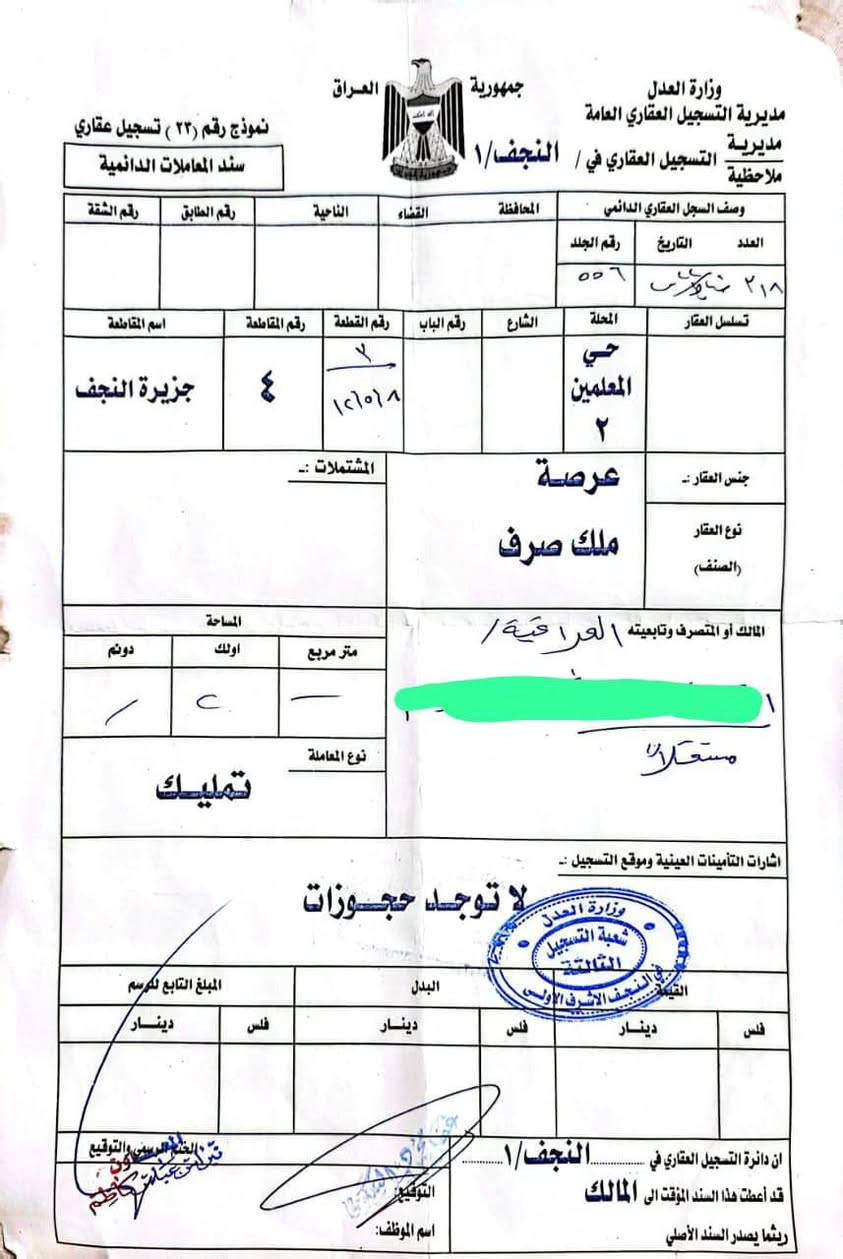 جمهورية العراق
وزارة العدل
مديرية التسجيل العقاري العامة
مديرية
ملاحظية
التسجيل العقاري في / النجف/١
نموذج رقم (٢٣) تسجيل عقاري
سند المعاملات الدائمية
وصف السجل العقاري الدائمي
المحافظة القضاء الناحية رقم الطابق رقم الشقة
العدد التاريخ رقم الجلد
٢١٨ ٥٥٦
تسلسل العقار المحلة الشارع رقم الباب رقم القطعة رقم المقاطعة اسم المقاطعة
حي المعلمين ٢
٣
٤
جزيرة النجف
جنس العقار :ـ عرصة
المشتملات :ـ
نوع العقار
(الصنف)
ملك صرف
المالك أو المتصرف وتابعيته العراقية/
مستقلاً
المساحة
متر مربع اولك دونم
— ٢ /
نوع المعاملة
تمليك
اشارات التأمينات العينية وموقع التسجيل :ـ
لا توجد حجوزات
وزارة العدل
شعبة التسجيل
الثالثة
في النجف الاشرف الاولى
القيمة البدل المبلغ التابع للرسم
فلس دينار فلس دينار فلس دينار
ان دائرة التسجيل العقاري في ........ النجف/١ ........
قد أعطت هذا السند المؤقت الى المالك
ريثما يصدر السند الأصلي
التوقيع:
اسم الموظف:
الختم الرسمي والتوقيع
المعاون